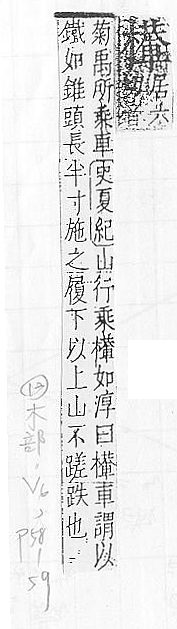 檋居六
菊禹所乘車史夏紀山行乘檋如淳曰檋車謂以
鐵如錐頭長半寸施之履下以上山不蹉跌也
木部. V6,
P58-59